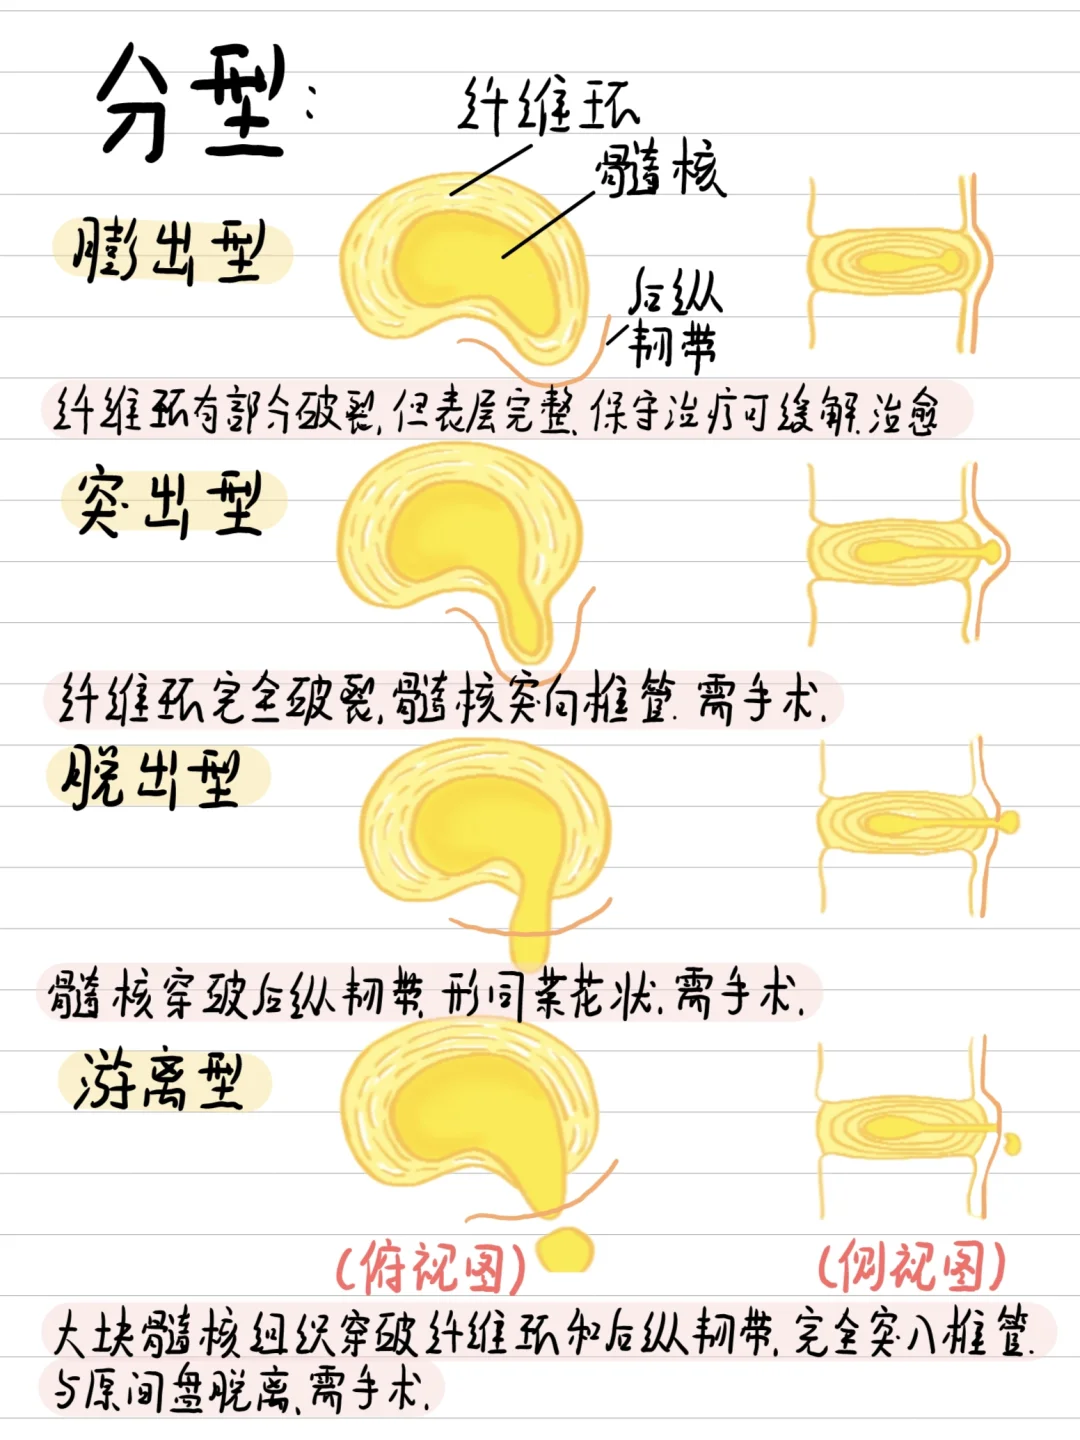 分型:
纤维环
髓核
膨出型
后纵
韧带
纤维环有部分破裂,但表层完整、保守治疗可缓解、治愈
突出型
纤维环完全破裂,髓核突向椎管.需手术.
脱出型
髓核穿破后纵韧带、形同菜花状.需手术.
游离型
(俯视图)
(侧视图)
大块髓核组织穿破纤维环和后纵韧带、完全突入椎管.
与原间盘脱离、需手术.